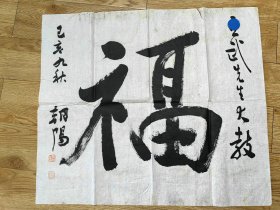 武先生大教
福
己亥九秋
朝陽